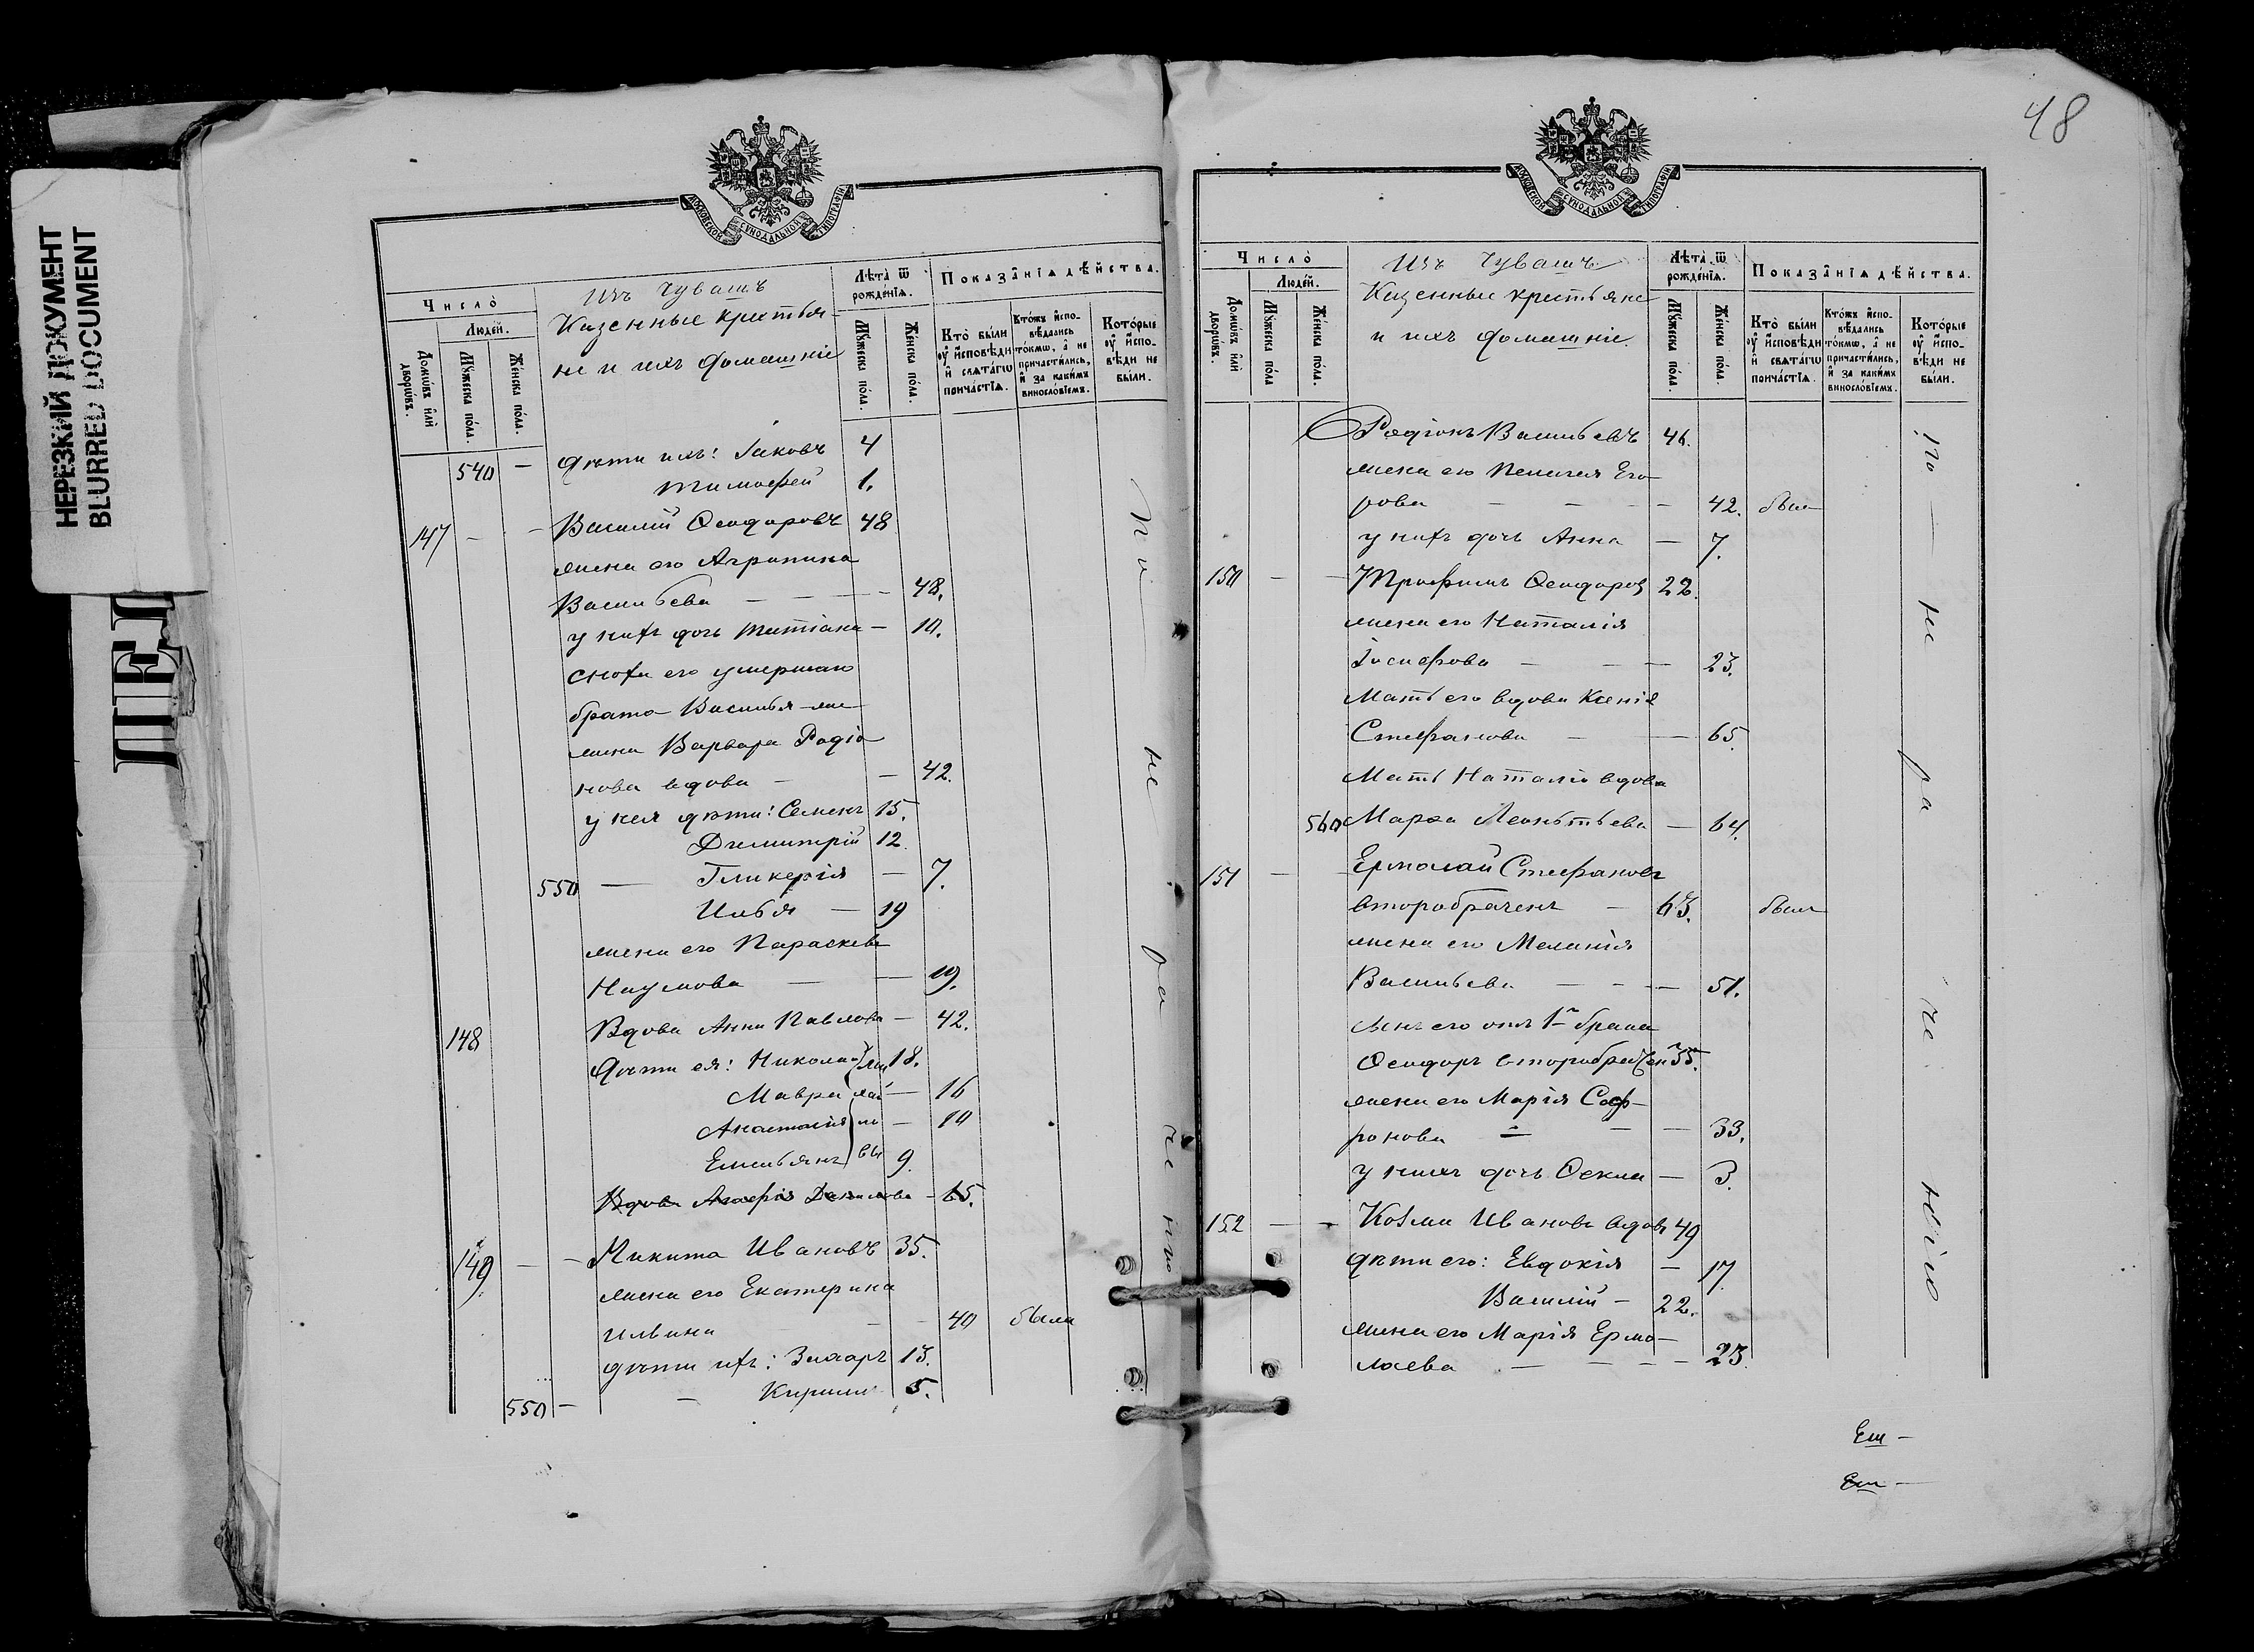 НЕРЕЗКИЙ ДОКУМЕНТ
BLURRED DOCUMENT
48
МОСКОВСКОЙ СѴНОДАЛЬНОЙ ТИПОГРАФІИ
Число̀
Людей.
Домѡвъ и҆лѝ дворѡвъ.
Мꙋжеска по́ла.
Же́нска по́ла.
Изъ Чувашъ
Казенные крестья-
не и ихъ домашніе
Лѣта̀ ѿ рожде́нїѧ.
Мꙋжеска по́ла.
Же́нска по́ла.
Показа̑нїѧ дѣ́йства.
Кто̀ бы́ли ᲂу҆ и҆сповѣ́ди и҆ свѧта́гѡ прича́стїѧ.
Кто́жъ и҆спо-
вѣ́дались
то́кмѡ, а҆ не
причасти́лись,
и҆ за каки́мъ
винослόвїемъ.
Кото́рые
ᲂу҆ и҆спо-
вѣ́ди не
бы́ли.
540 — дѣти ихъ: Іаковъ 4
Тимофей 1.
147 — — Василій Ѳеодоровъ 48
жена его Агрипина
Васильева — — — 48.
у нихъ дочь Татіана — 10.
сноха его умершаго
брата Василья же-
жена Варвара Родіо-
нова вдова — — 42.
у нея дѣти: Семенъ 15.
Димитрій 12.
550 — Гликерія — 7.
Илья — 19
жена его Параскева
Наумова — — 19.
148 Вдова Анна Павлова — 42.
Дѣти ея: Николай 18.
Мавра — 16
Анастасія — 10
Емельянъ 9.
Вдова Агафія Данилова — 65.
149 — — Никита Ивановъ 35.
жена его Екатерина
Ильина — — 40 была
дѣти ихъ: Захаръ 13.
550 — — Кирилл 5.
По — не ра че нію
Число̀
Людей.
Домѡвъ и҆лѝ дворѡвъ.
Мꙋжеска по́ла
Же́нска по́ла.
Изъ Чувашъ
Казенные крестьяне
и ихъ домашніе.
Лѣта̀ ѿ рожде́нїѧ.
Мꙋжеска по́ла.
Же́нска по́ла.
Показа̑нїѧ дѣ́йства.
Кто̀ бы́ли ᲂу҆ и҆сповѣ́ди и҆ свѧта́гѡ прича́стїѧ.
Кто́жъ и҆спо-
вѣ́дались
то́кмѡ, а҆ не
причасти́лись,
и҆ за каки́мъ
винослόвїемъ.
Кото́рые
ᲂу҆ и҆спо-
вѣ́ди не
бы́ли.
Родіонъ Васильевъ 46.
жена его Пелагея Его-
рова — — — 42. был
у нихъ дочь Анна — 7.
150 — — Трофимъ Ѳеодоров 22.
жена его Наталія
Іосифова — — — 23.
Мать его вдова Ксенія
Стефанова — — 65.
Мать Наталіи вдова
560 Марѳа Леонтьева — 64.
151 — — Ермолай Стефановъ
второбраченъ — 63. был
жена его Меланія
Васильева — — — 51.
сынъ его отъ 1го брака
Ѳеодоръ второбрачен 35.
жена его Марія Соф-
ронова — — — 33.
у нихъ дочь Ѳекла — 3.
152 — — Козма Ивановъ вдовъ 49
дѣти его: Евдокія — 17
Василій — 22.
жена его Марія Ермо-
лаева — — — 23.
по — не ра че нію
Еш —
Еш —